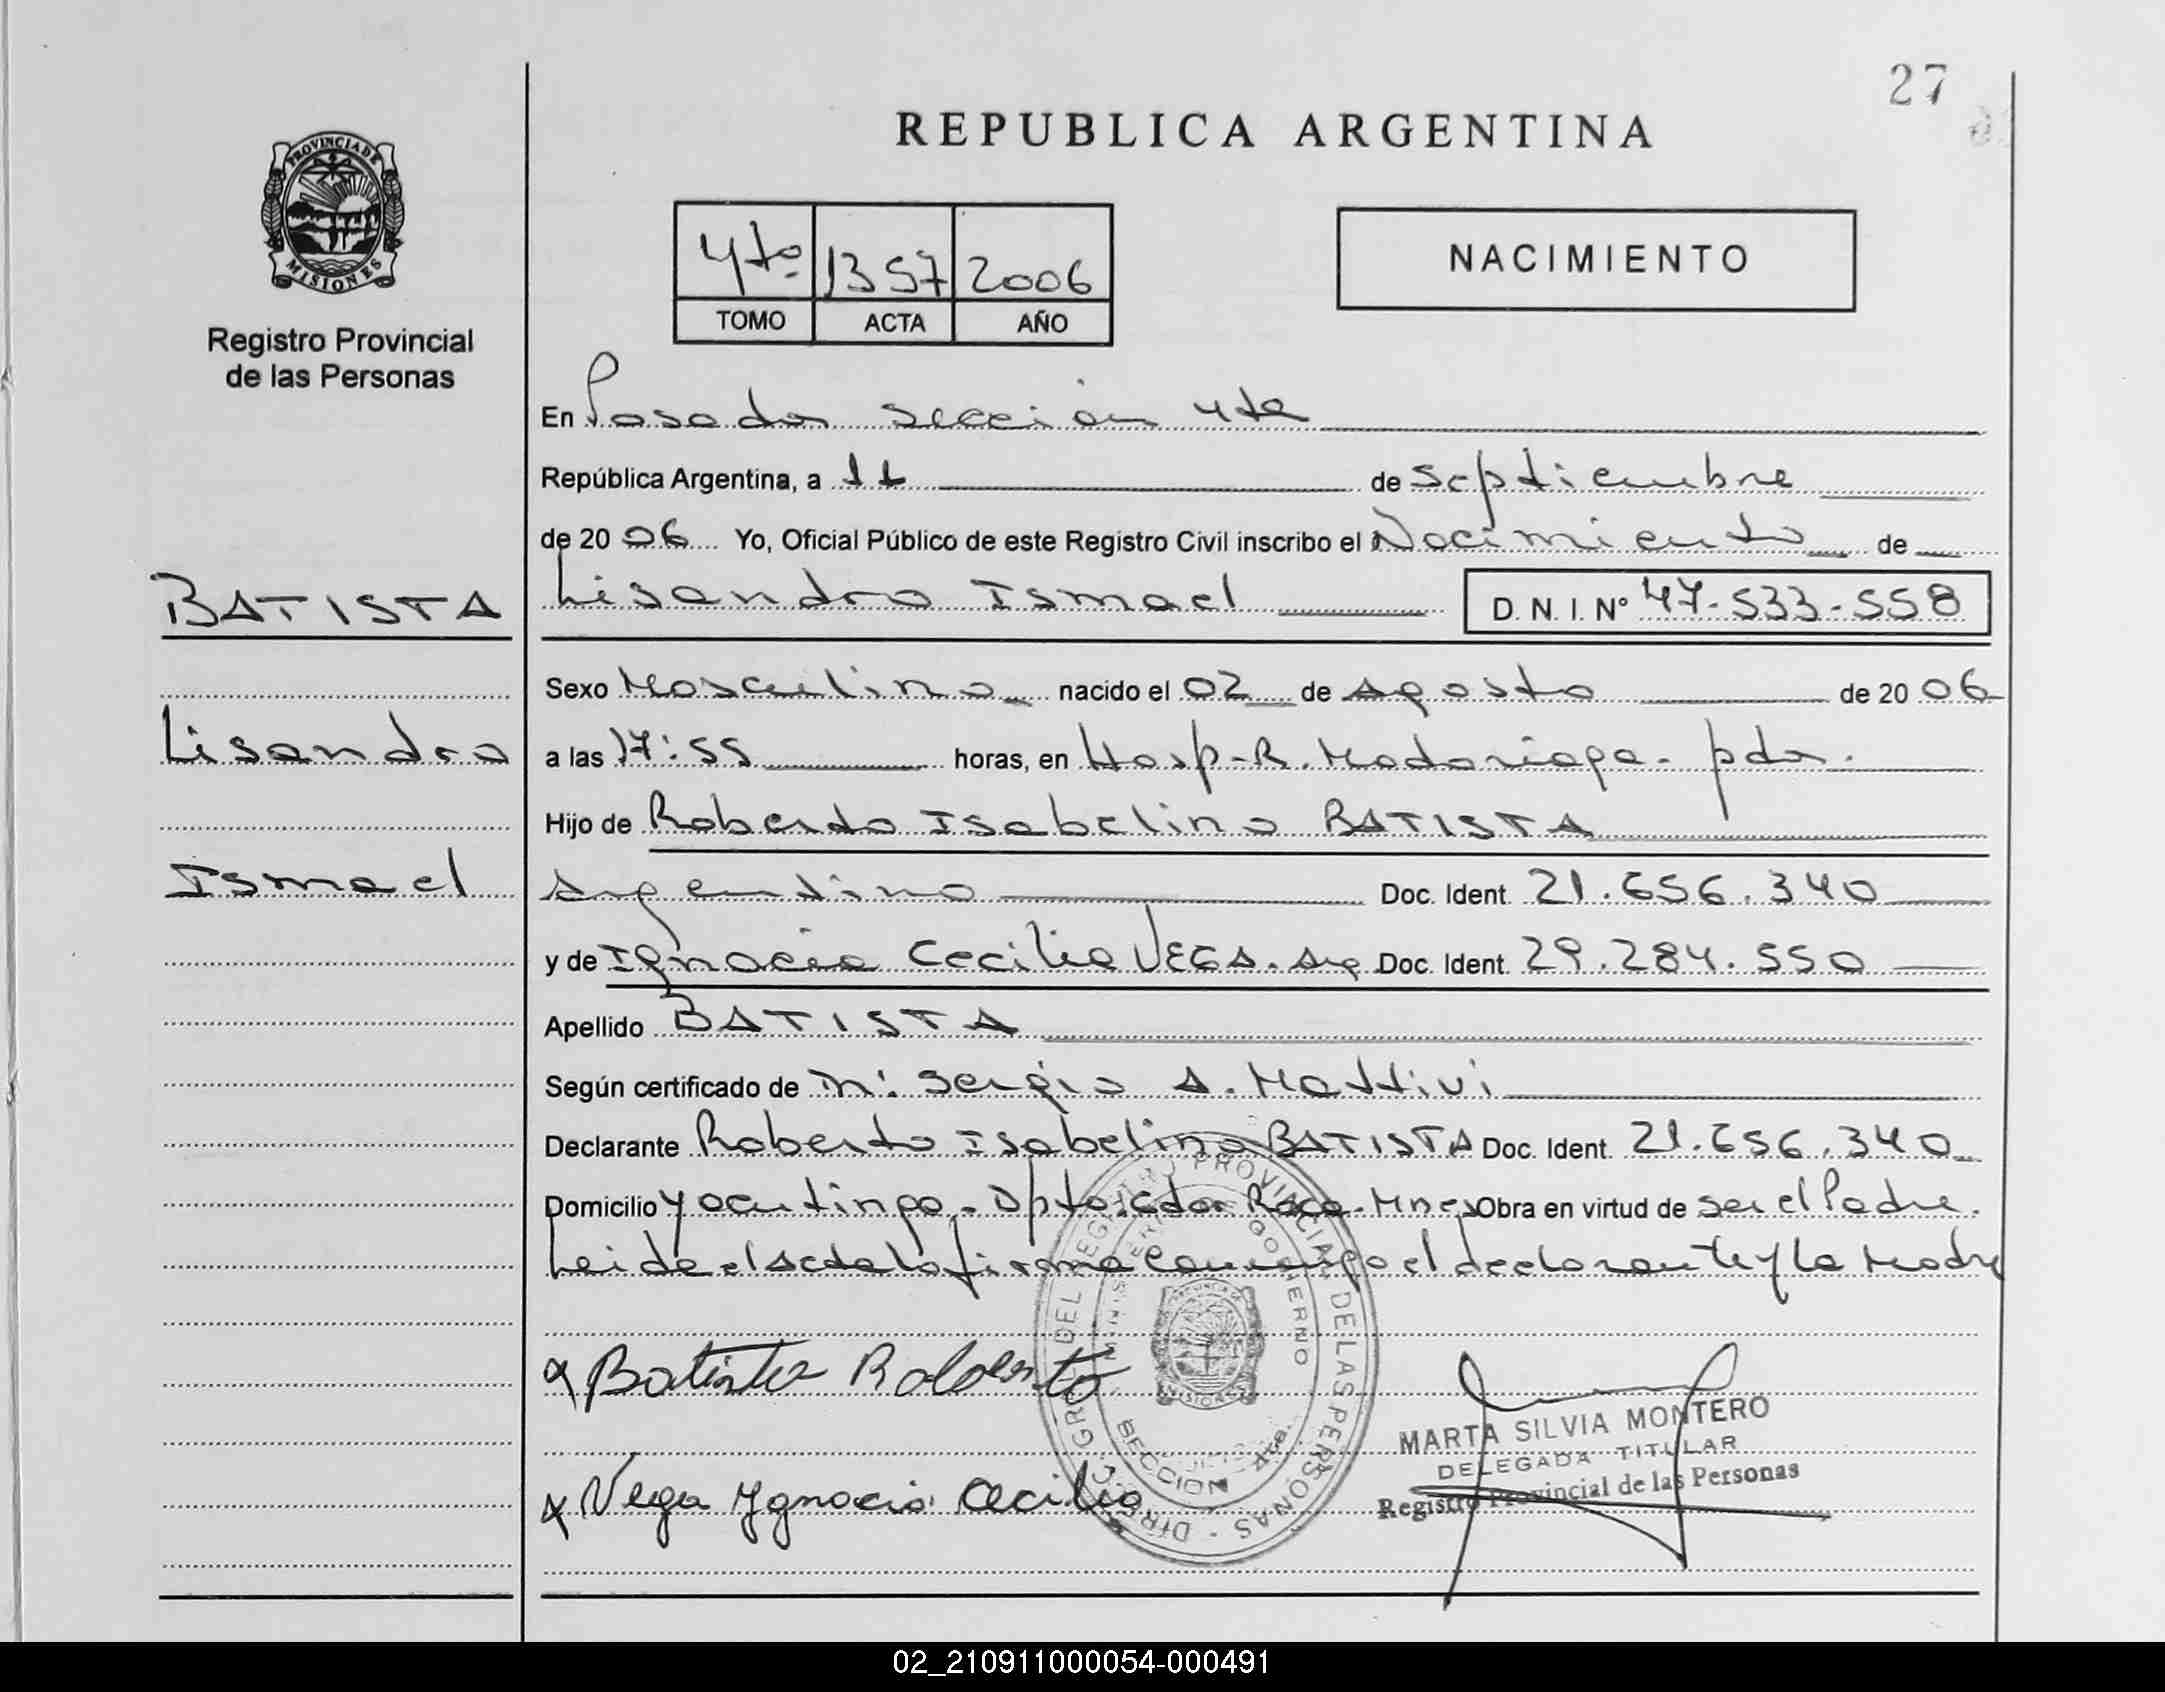 27
REPUBLICA ARGENTINA
PROVINCIA DE
MISIONES
Registro Provincial
de las Personas
4to 1357 2006
TOMO ACTA AÑO
NACIMIENTO
En Posadas sección 4ta
República Argentina, a 11 de septiembre
de 2006 Yo, Oficial Público de este Registro Civil inscribo el Nacimiento de
BATISTA
Lisandro Ismael D. N. I. Nº 47-533-558
Sexo Masculino nacido el 02 de agosto de 2006
Lisandro
a las 17:55 horas, en Hosp-R. Madariaga- pdas.
Hijo de Roberto Isabelino BATISTA
Ismael
Argentino Doc. Ident. 21.656.340
y de Ignacia Cecilia VEGA. Arg Doc. Ident. 29.284.550
Apellido BATISTA
Según certificado de Sergio A. Mattivi
Declarante Roberto Isabelino BATISTA Doc. Ident. 21.656.340
Domicilio Yacutinga - Dpto. Gdor Roca - Mnes Obra en virtud de ser el Padre.
Leida el Acta la firma conmigo el declarante y la Madre
Batista Roberto
Vega Ygnacia Cecilia
DIREC. GRAL. DEL REGISTRO PROVINCIAL DE LAS PERSONAS
GOBIERNO
MISIONES
SECCION 4ta.
MARTA SILVIA MONTERO
DELEGADA TITULAR
Registro Provincial de las Personas
02_210911000054-000491